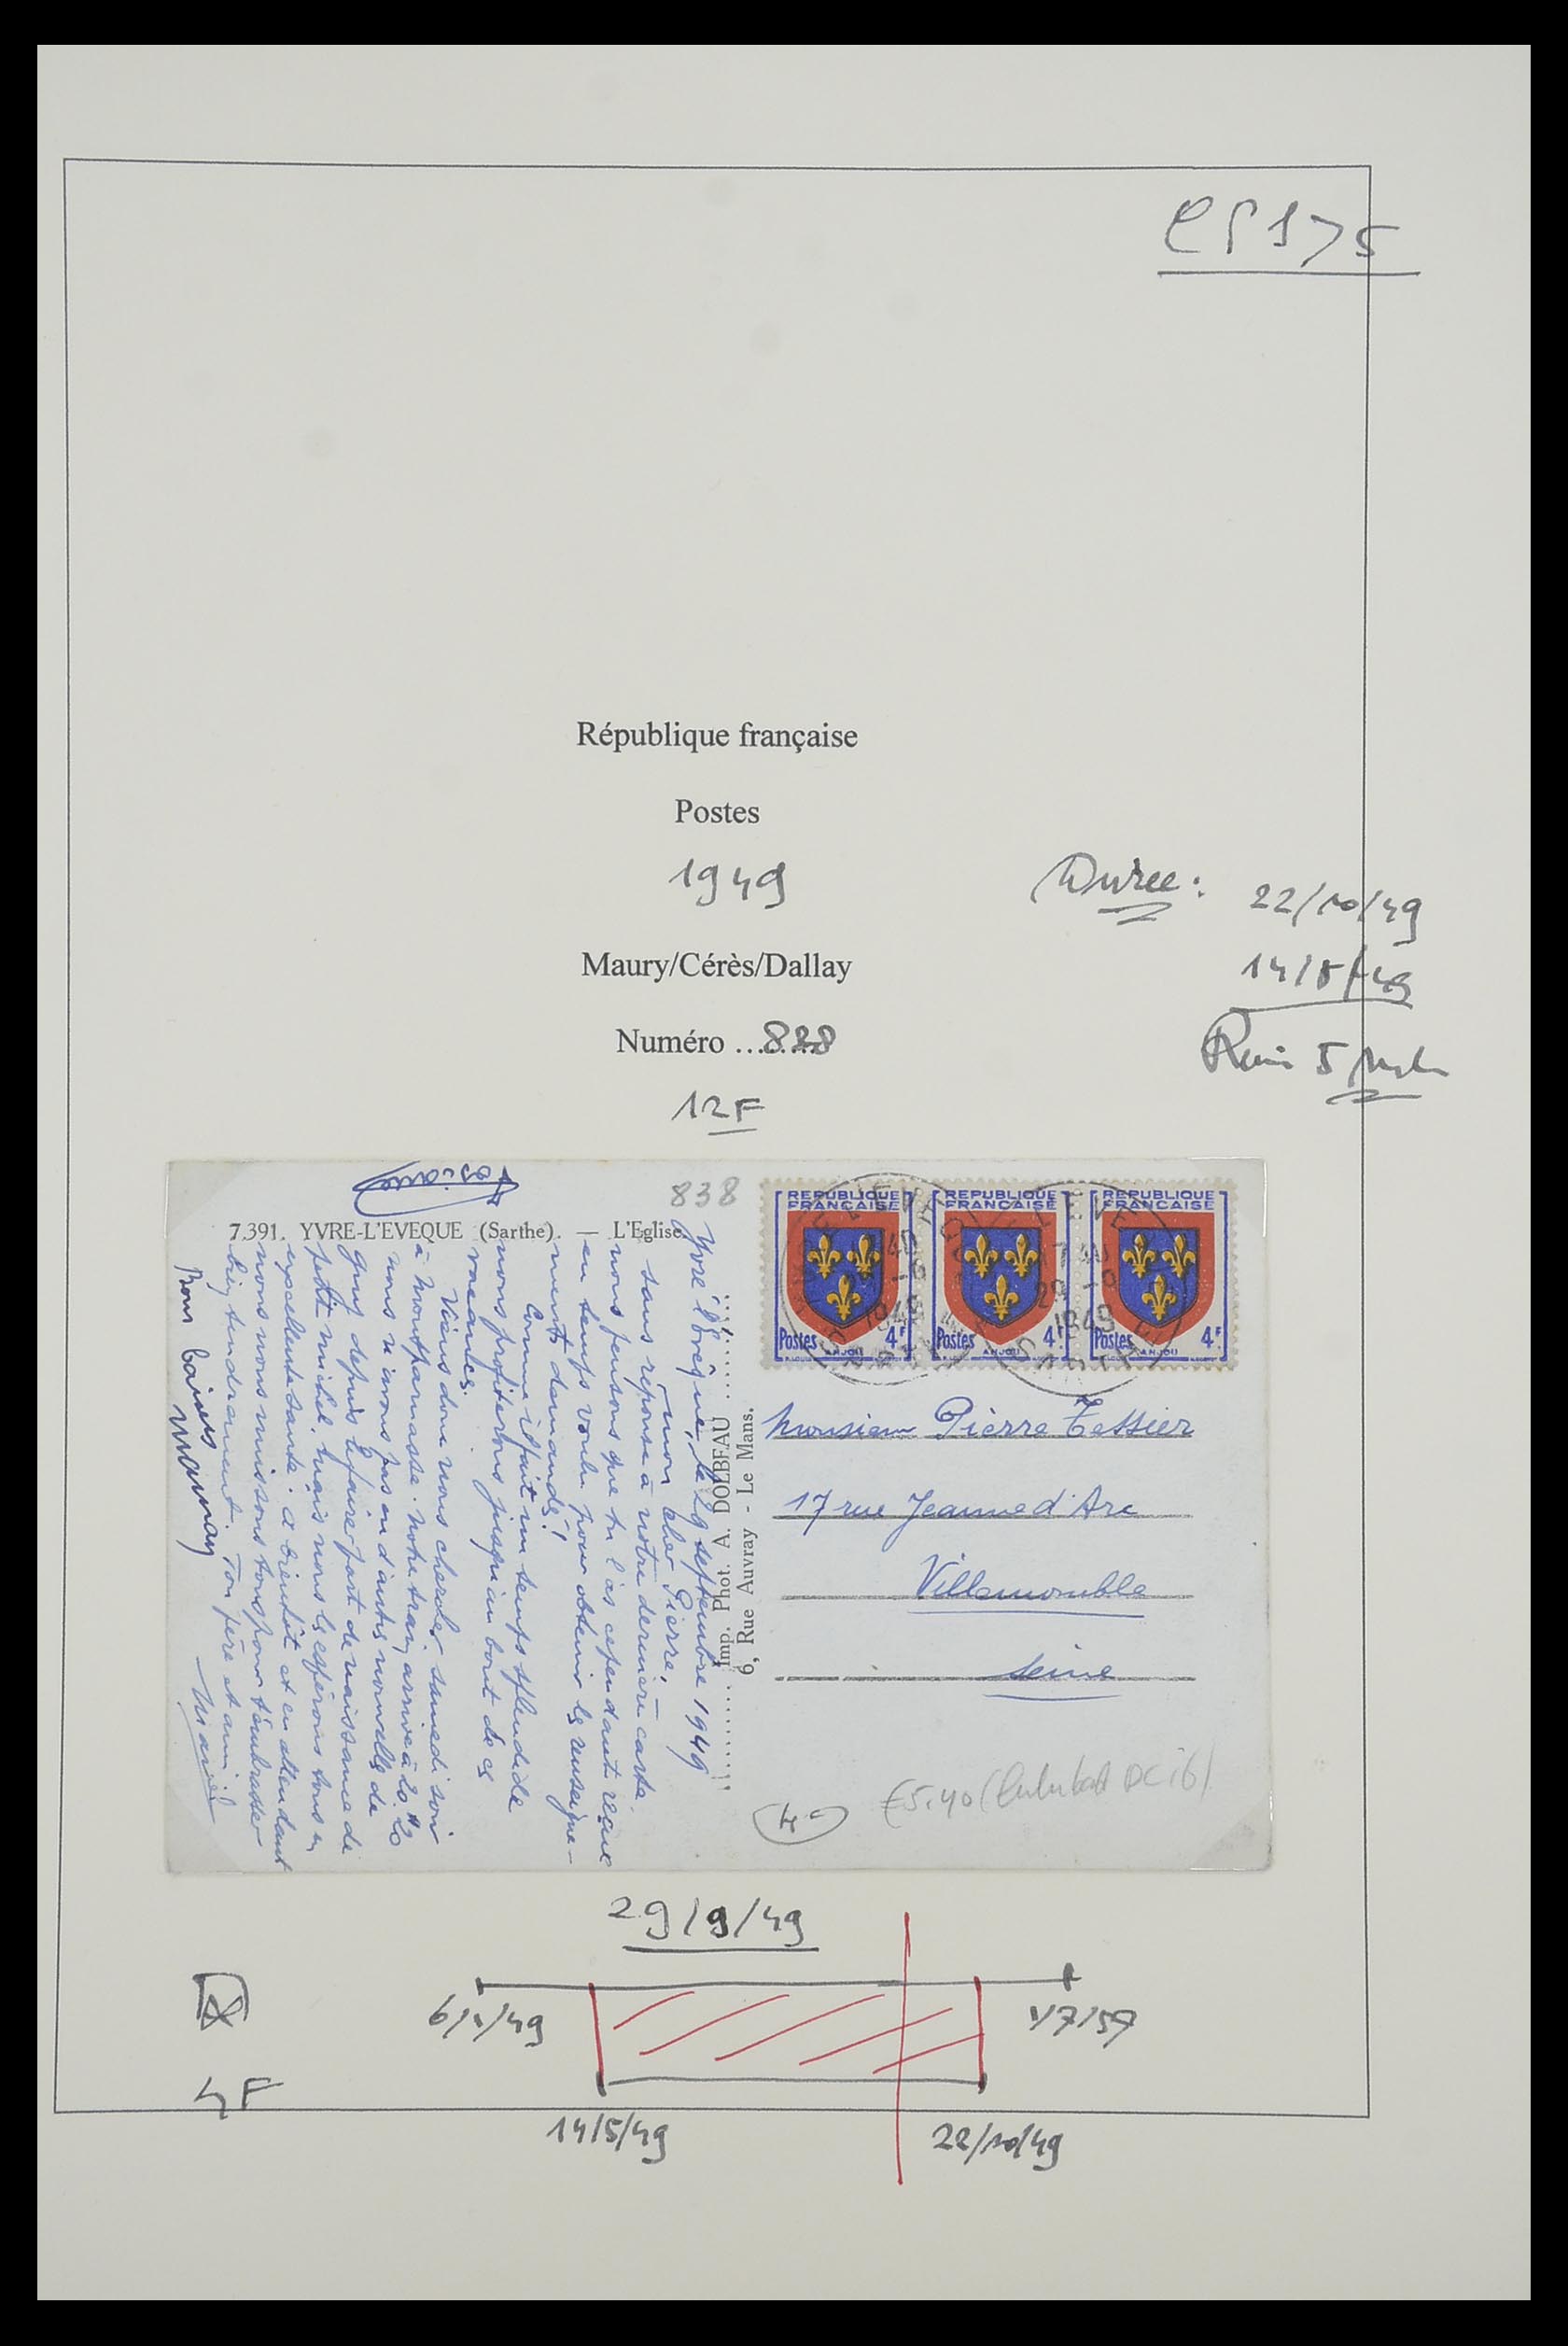 CP175
République française
Postes
1949
Durée: 22/10/49
14/5/49
Maury/Cérès/Dallay
Numéro ...838
5
12F
838
7.391. YVRE-L'EVEQUE (Sarthe). — L'Eglise.
REPUBLIQUE FRANÇAISE
Postes 4F
ANJOU
REPUBLIQUE FRANÇAISE
Postes 4F
ANJOU
REPUBLIQUE FRANÇAISE
Postes 4F
ANJOU
1949
Yvré l'Evêque, le 29 septembre 1949
mon cher Pierre, —
sans réponse à notre dernière carte
nous pensons que tu l'as cependant reçue
en temps voulu pour obtenir les renseigne-
ments demandés!
Comme il fait un temps splendide
nous profiterons jusqu'au bout de ces
vacances.
Viens donc nous chercher samedi soir
à Montparnasse. Notre train arrive à 20h20
nous n'avons pas eu d'autres nouvelles de
depuis le faire-part de naissance de
petit michel, mais nous les espérons tous en
excellente santé. A bientôt et en attendant
nous nous unissons tous pour t'embrasser
bien tendrement. Ton père et ami
Bons baisers
mamay
Imp. Phot. A. DOLBEAU
6, Rue Auvray - Le Mans.
Monsieur Pierre Tessier
17 rue Jeanne d'Arc
Villemomble
Seine
€5.40
29/9/49
6/1/49
1/7/57
4F
14/5/49
22/10/49